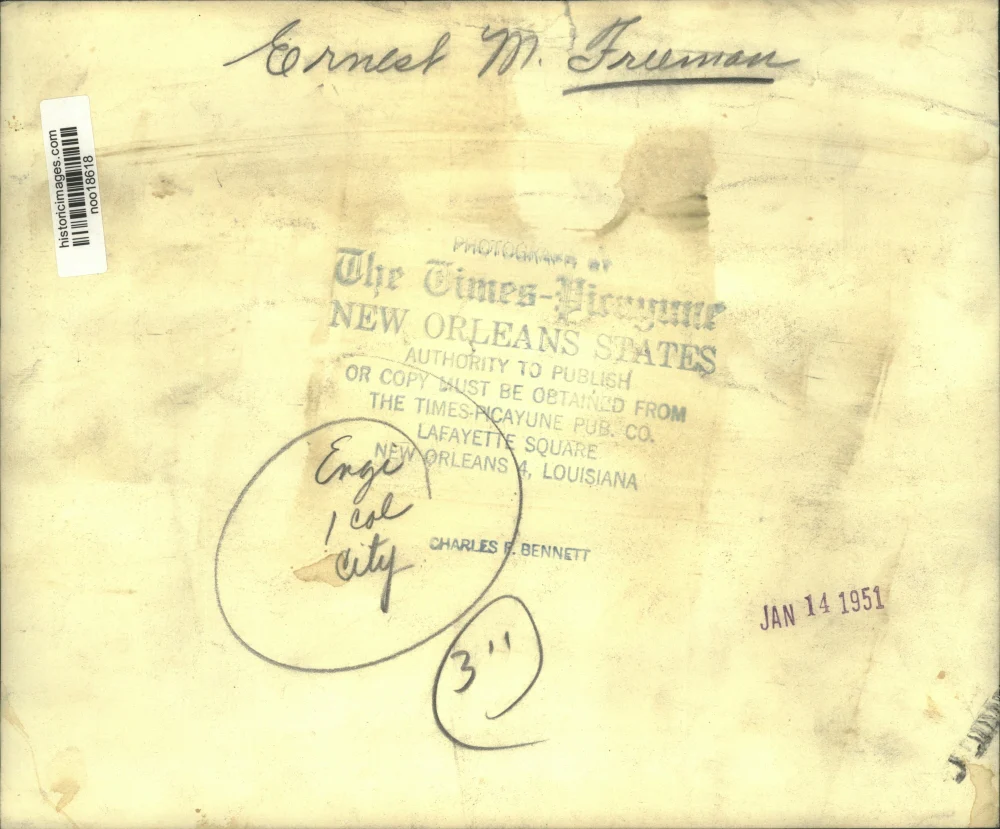 Ernest M. Freeman
historicimages.com
noo18618
PHOTOGRAPH BY
The Times-Picayune
NEW ORLEANS STATES
AUTHORITY TO PUBLISH
OR COPY MUST BE OBTAINED FROM
THE TIMES-PICAYUNE PUB. CO.
LAFAYETTE SQUARE
NEW ORLEANS 4, LOUISIANA
1 col
City
CHARLES F. BENNETT
JAN 14 1951
3"